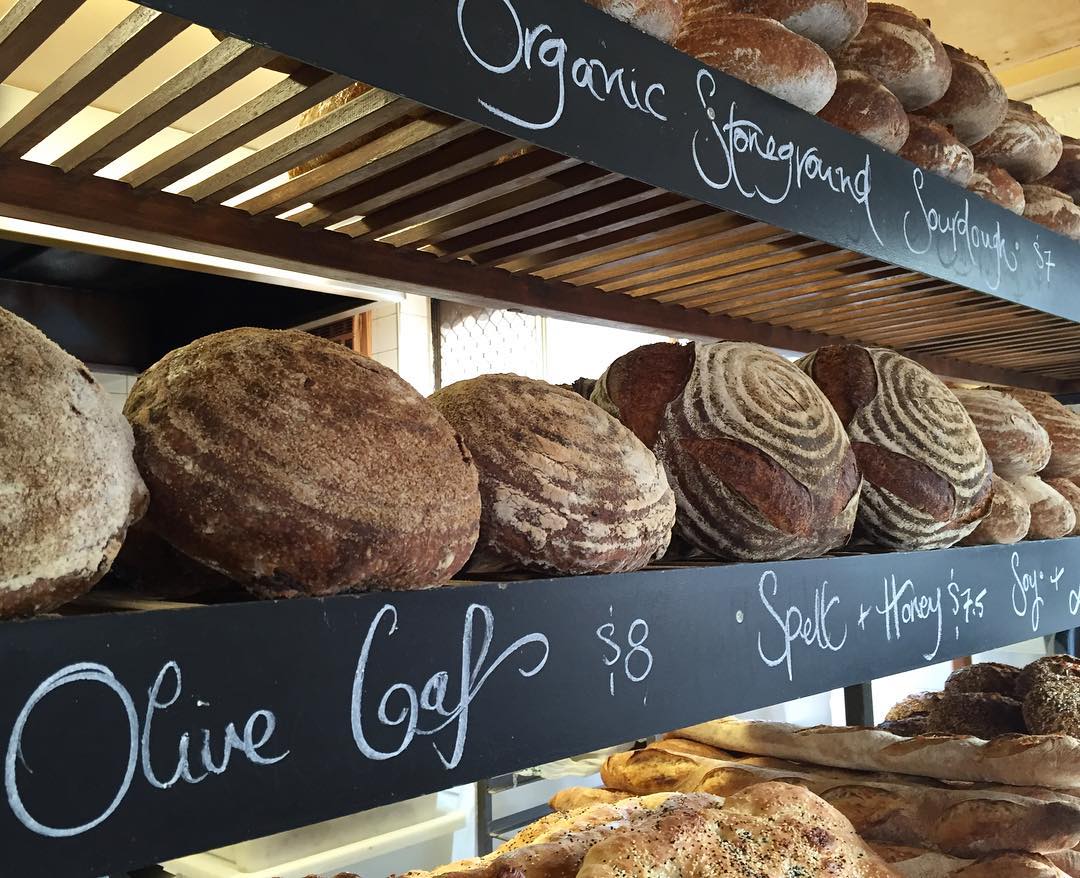 Organic Stoneground Sourdough. $7
Olive Loaf $8 Spelt + Honey $7.5 Soy. +